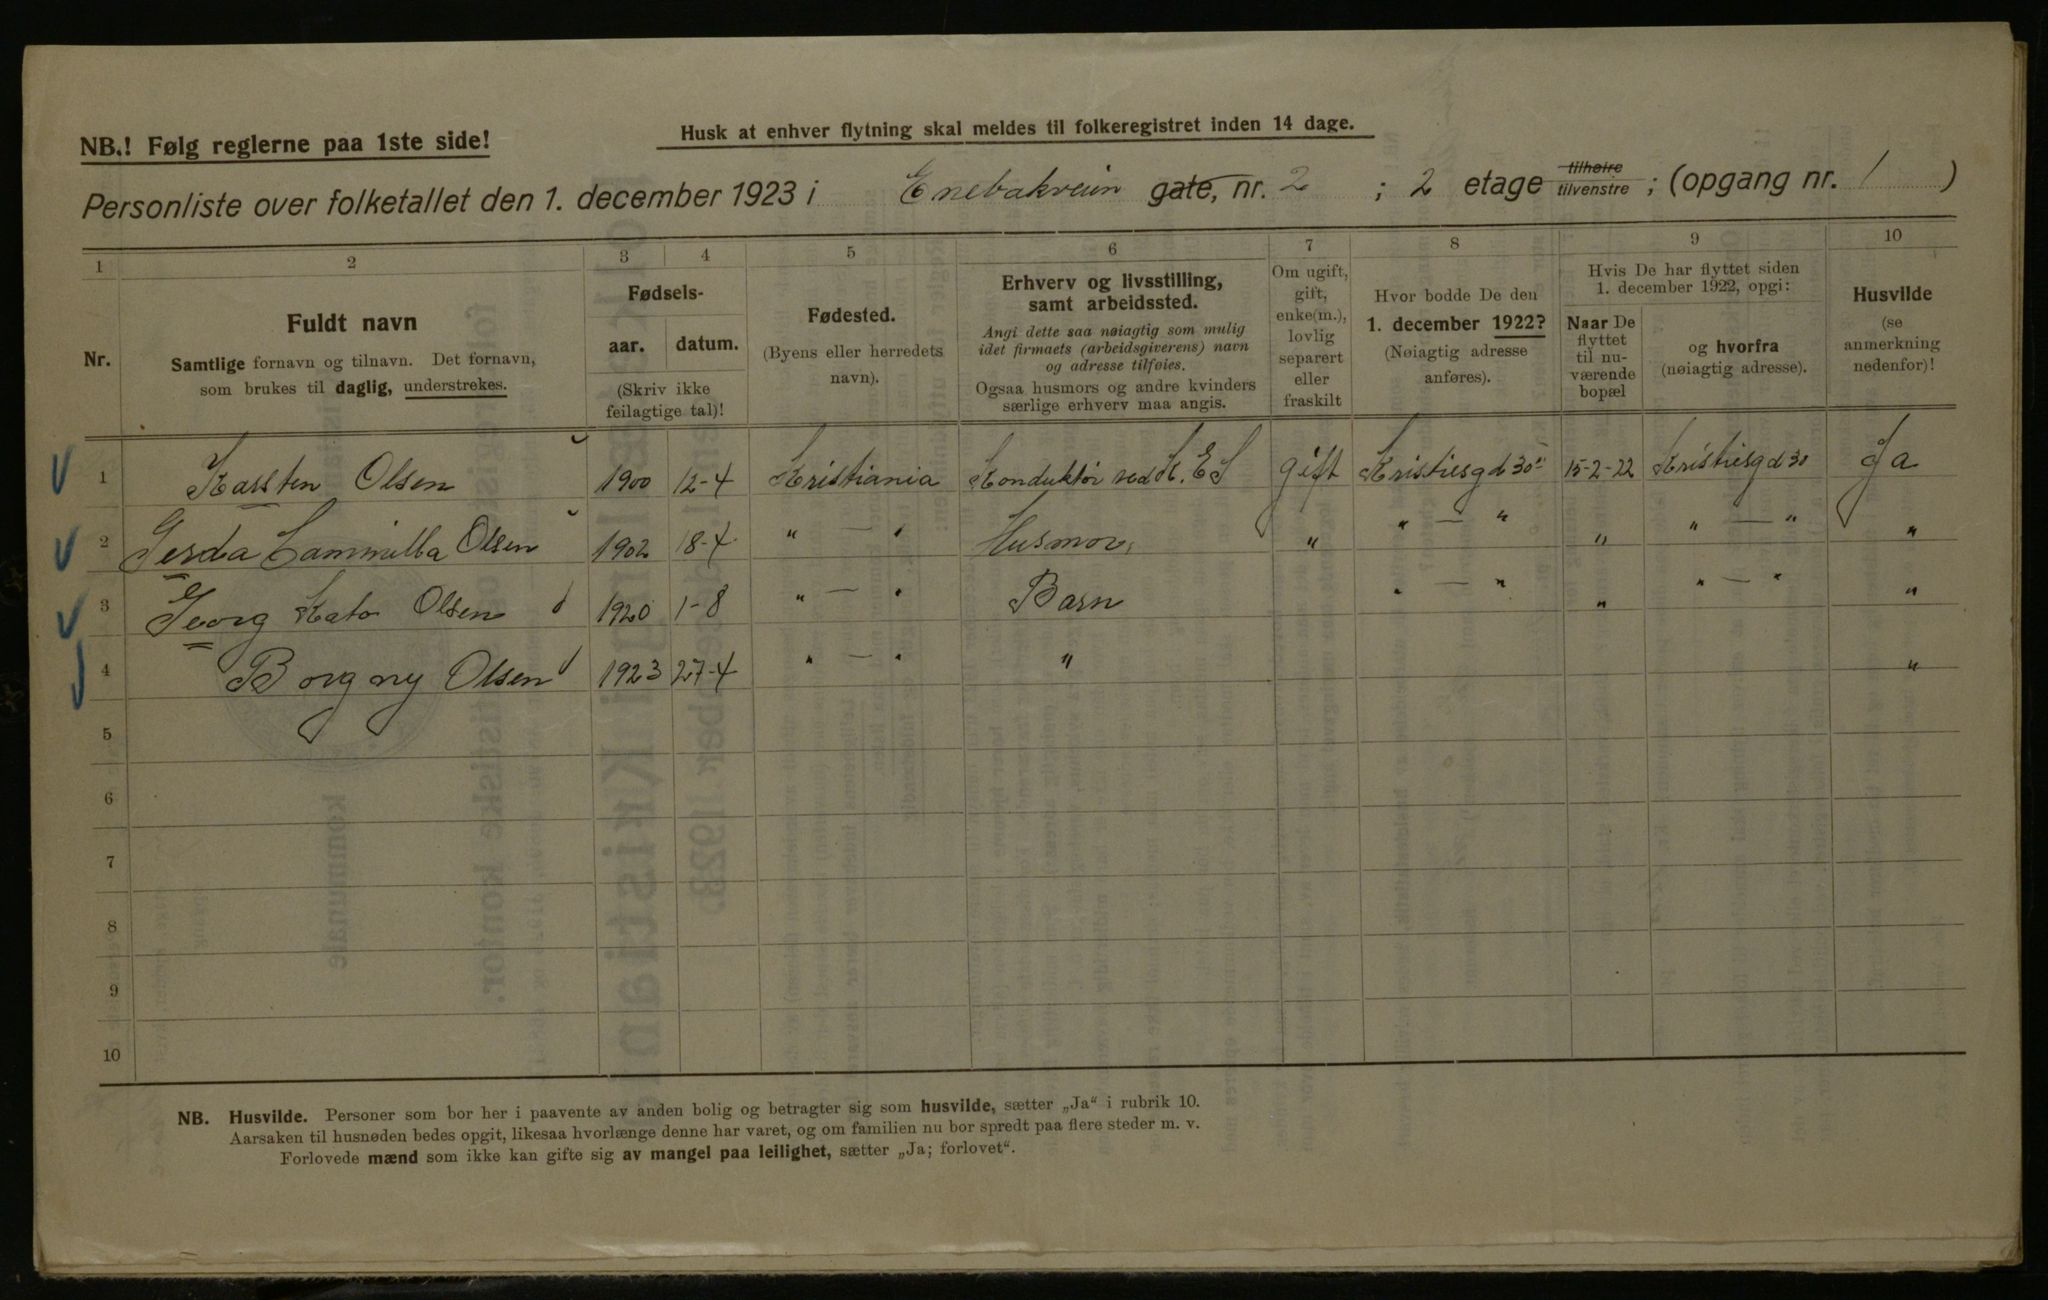 NB.! Følg reglerne paa 1ste side!
Husk at enhver flytning skal meldes til folkeregistret inden 14 dage.
Personliste over folketallet den 1. december 1923 i Enebakveien gate, nr. 2 ; 2 etage tilhøire tilvenstre ; (opgang nr. 1 )
1 2 3 4 5 6 7 8 9 10
Nr.
Fuldt navn
Samtlige fornavn og tilnavn. Det fornavn,
som brukes til daglig, understrekes.
Fødsels-
aar. datum.
(Skriv ikke
feilagtige tal)!
Fødested.
(Byens eller herredets
navn).
Erhverv og livsstilling,
samt arbeidssted.
Angi dette saa nøiagtig som mulig
idet firmaets (arbeidsgiverens) navn
og adresse tilføies.
Ogsaa husmors og andre kvinders
særlige erhverv maa angis.
Om ugift,
gift,
enke(m.),
lovlig
separert
eller
fraskilt
Hvor bodde De den
1. december 1922?
(Nøiagtig adresse
anføres).
Hvis De har flyttet siden
1. december 1922, opgi:
Naar De
flyttet
til nu-
værende
bopæl
og hvorfra
(nøiagtig adresse).
Husvilde
(se
anmerkning
nedenfor)!
1 Karsten Olsen 1900 12-4 Kristiania Konduktør ved K. E S gift Kristiesgd 30 15-2-22 Kristiesgd 30 Ja
2 Gerda Cammilla Olsen 1902 18-4 " — " Husmor " " — " " " — " "
3 Georg Kato Olsen 1920 1-8 " — " Barn " — " " " — " "
4 Borgny Olsen 1923 27-4 " — " " "
5
6
7
8
9
10
NB. Husvilde. Personer som bor her i paavente av anden bolig og betragter sig som husvilde, sætter „Ja“ i rubrik 10.
Aarsaken til husnøden bedes opgit, likesaa hvorlænge denne har varet, og om familien nu bor spredt paa flere steder m. v.
Forlovede mænd som ikke kan gifte sig av mangel paa leilighet, sætter „Ja; forlovet“.